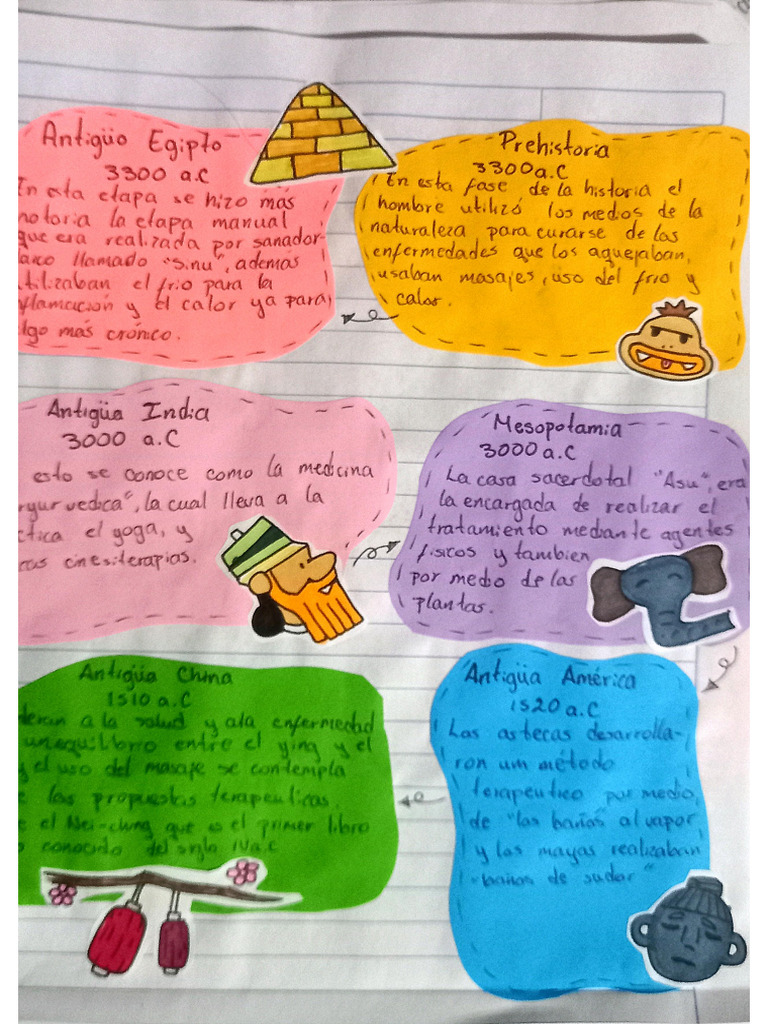 Prehistoria
3300 a.C
En esta fase de la historia el
hombre utilizó los medios de la
naturaleza para curarse de las
enfermedades que los aquejaban,
usaban masajes, uso del frio y
calor.
Antigüo Egipto
3300 a.C
En esta etapa se hizo más
notoria la etapa manual
que era realizada por sanador
llamado "Sinu", además
utilizaban el frío para la
flamación y el calor ya para
lgo más crónico.
Antigüa India
3000 a.C
esto se conoce como la medicina
yurvedica", la cual lleva a la
ctica el yoga, y
cinesiterapias.
Mesopotamia
3000 a.C
La casa sacerdotal "Asu", era
la encargada de realizar el
tratamiento mediante agentes
fisicos y tambien
por medio de las
plantas.
Antigüa América
1520 a.C
Los astecas desarrolla-
ron um método
terapeutico por medio,
de "los baños" al vapor
y los mayas realizaban
"baños de sudor"
Antigüa China
1510 a.C
deran a la salud y ala enfermedad
un equilibrio entre el ying y el
y el uso del masaje se contempla
las propuestas terapeuticas.
el Nei-ching que es el primer libro
conocido del siglo IV a.C